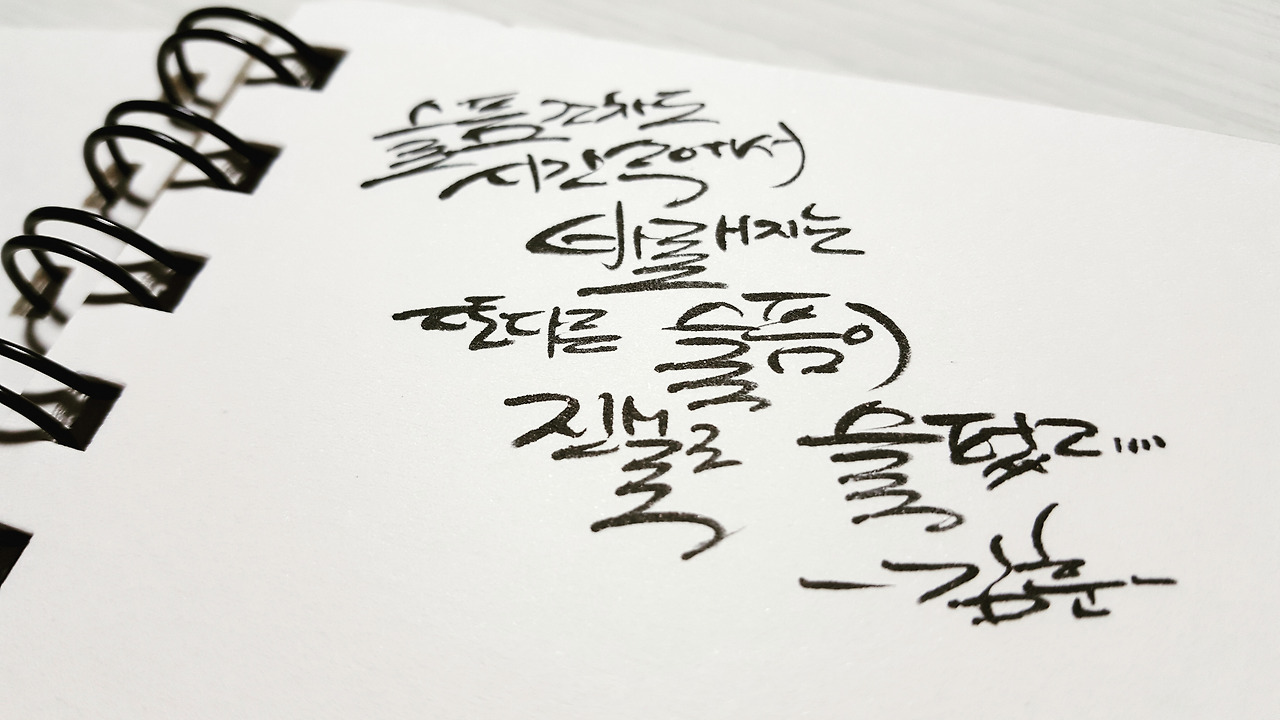 슬픔조차도
시간속에서
바래지는
또다른 슬픔이
진실로 슬펐고....
-김훈-